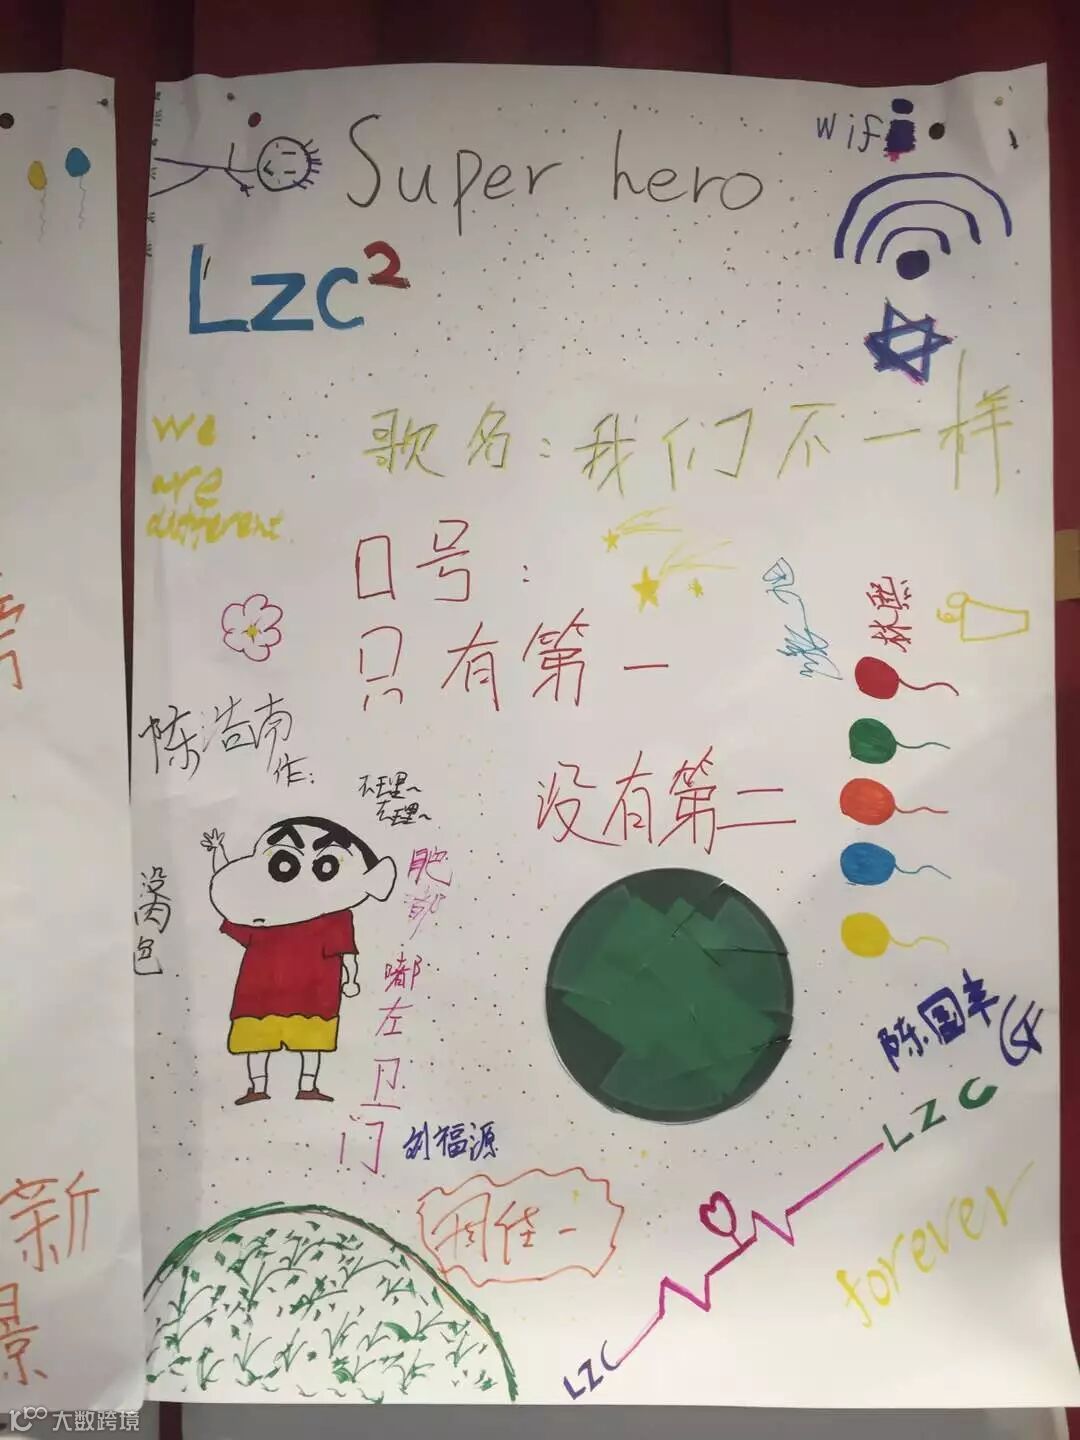 Super hero
wifi
Lzc²
we
are
different
歌名:我们不一样
口号:
只有第一
没有第二
林熙
陈浩南
作:
不理~
去理~
没肉包
肥
嘟
左
卫
门
刘福源
周佳一
陈国丰
LZC
LZC
forever
新
景
大数跨境